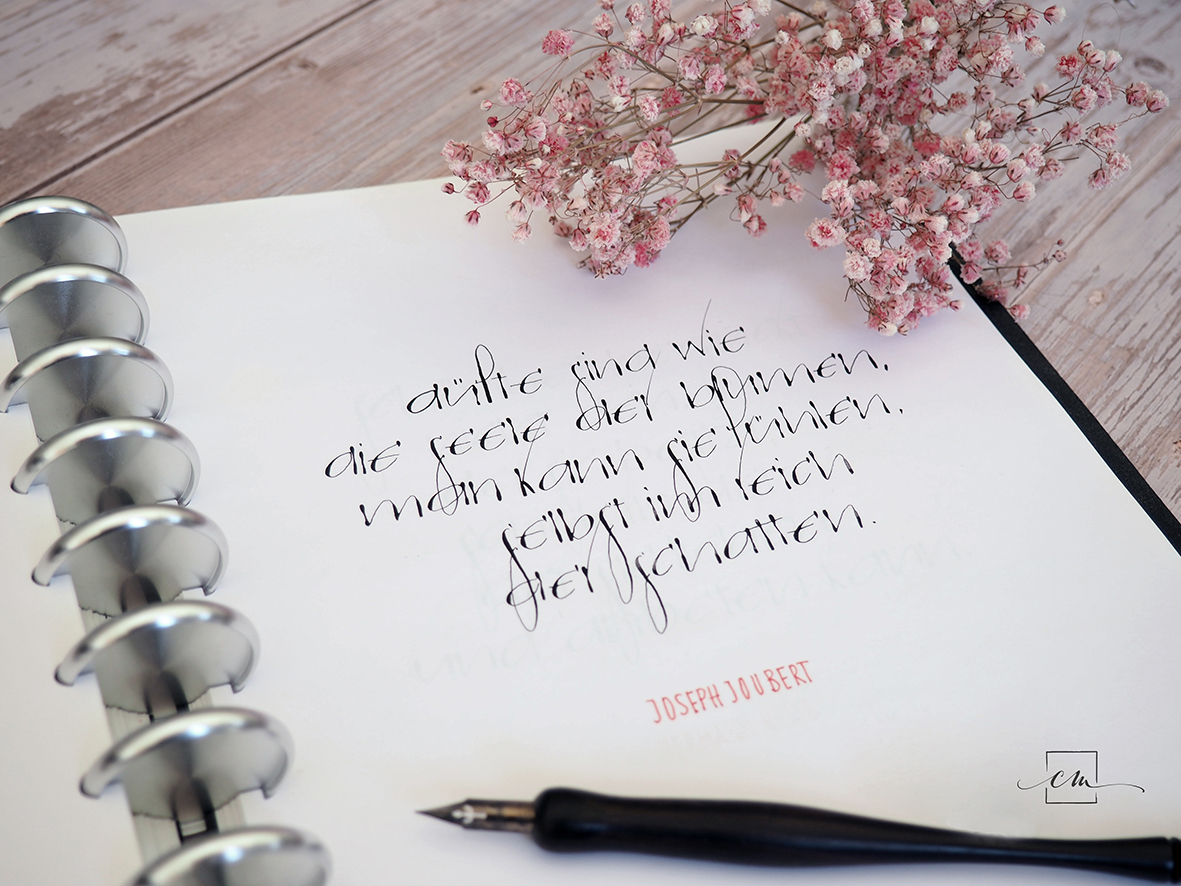 düfte sind wie
die seele der blumen,
man kann sie fühlen,
selbst im reich
der schatten.
JOSEPH JOUBERT
cm